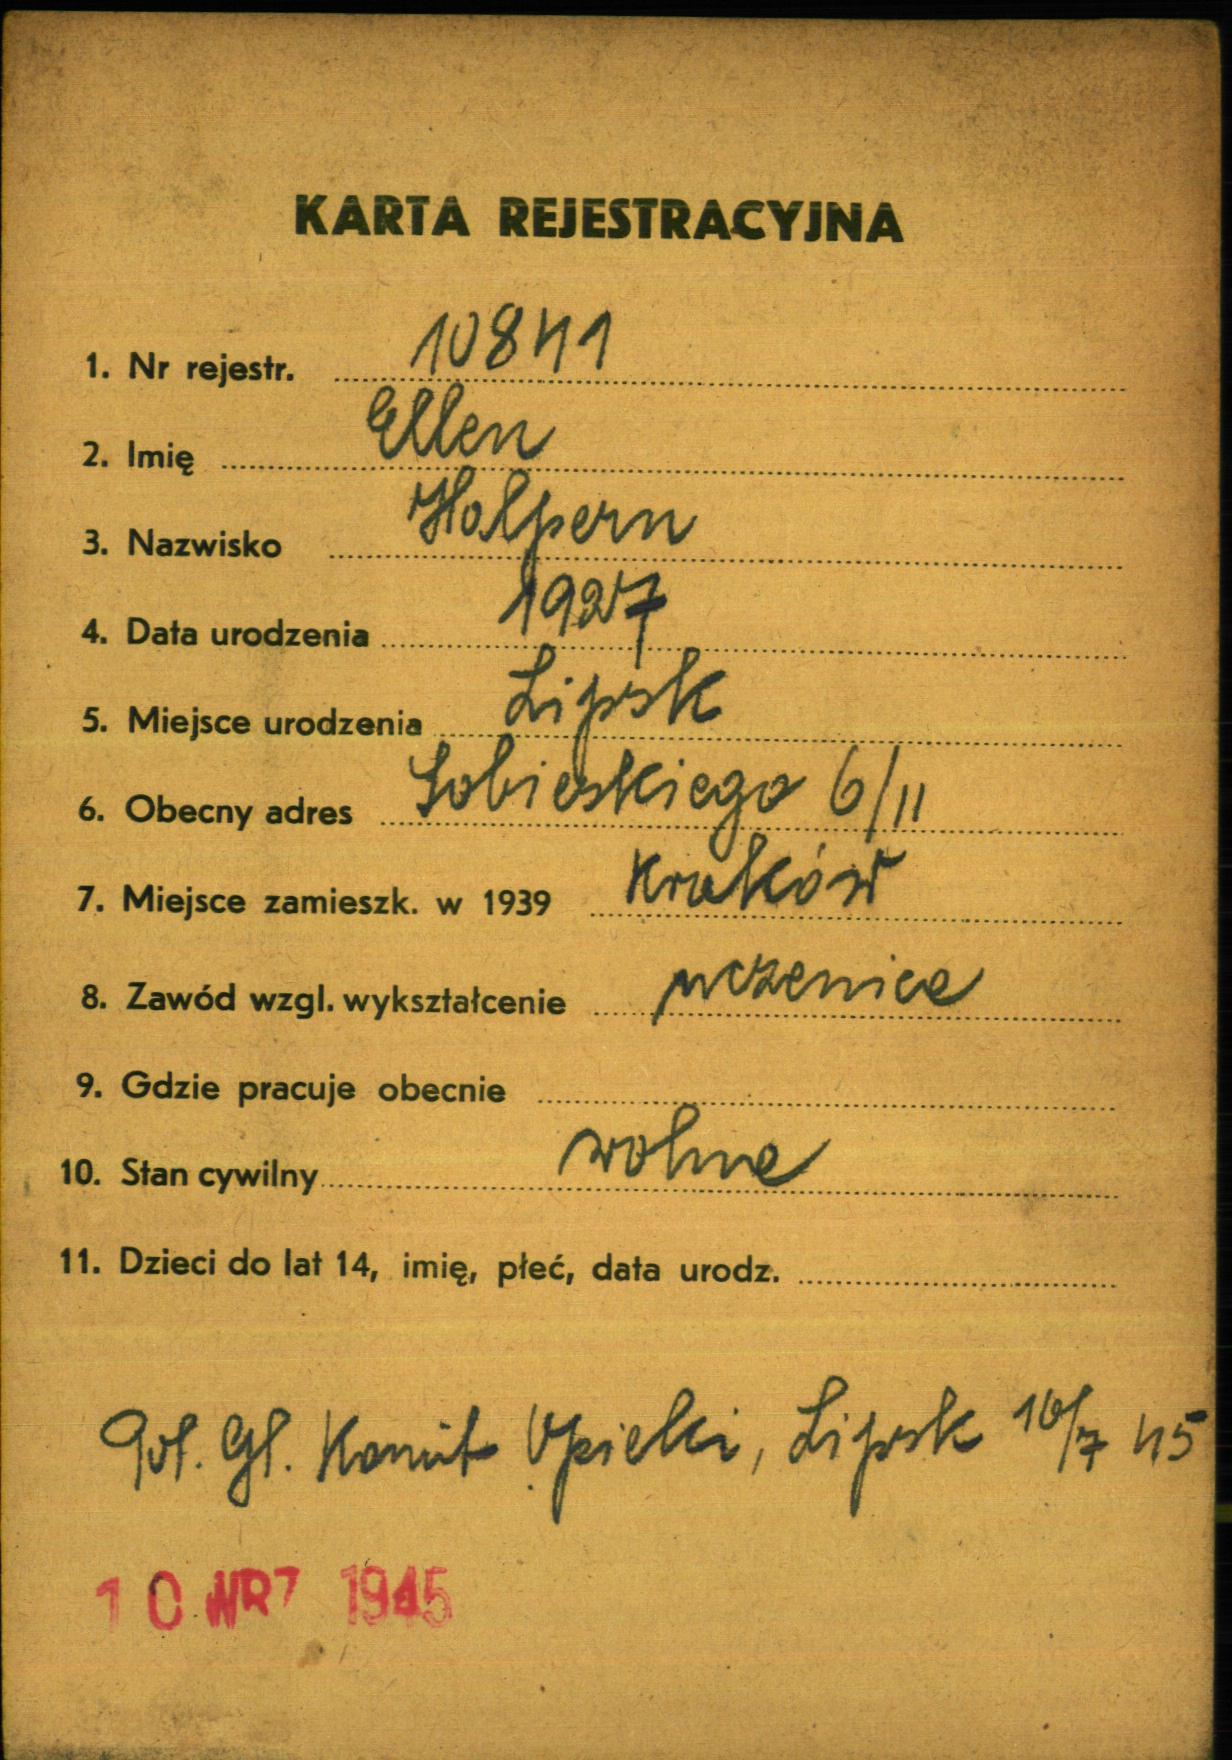 KARTA REJESTRACYJNA
1. Nr rejestr. 10841
2. Imię Ellen
3. Nazwisko Halpern
4. Data urodzenia 1927
5. Miejsce urodzenia Lipsk
6. Obecny adres Sobieskiego 6/11
7. Miejsce zamieszk. w 1939 Kraków
8. Zawód wzgl. wykształcenie uczenica
9. Gdzie pracuje obecnie
10. Stan cywilny wolna
11. Dzieci do lat 14, imię, płeć, data urodz.
Gł. Komit Opieki, Lipsk 10/7 45
10 WRZ 1945